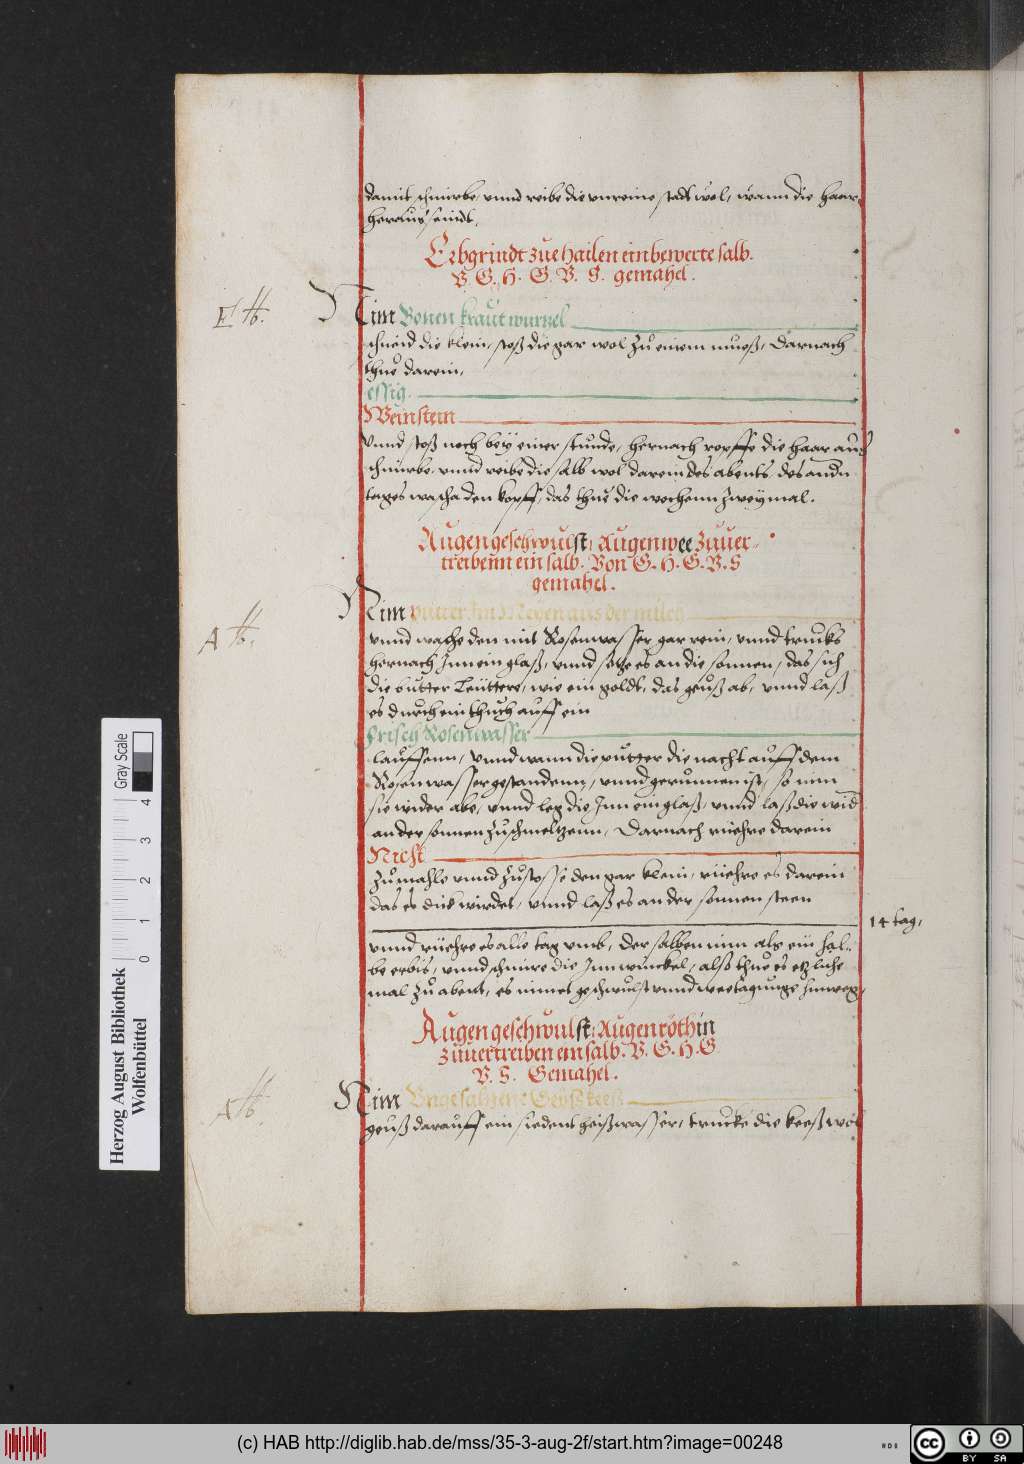 damit schmirbe, vnnd reibe die vnreine stadt wol, wann die haar
heraus seindt.
Erbgrindt zue hailen ein bewerte salb.
V. G. H. G. V. S. gemahel.
E
Nim Bonen kraut wurzel
schneid die klein, stoß die gar wol zu einem mueß, Darnach
thue darein,
essig.
Weinstein
Vnnd stoß noch bey einer stunde, hernach ropffe die haar auß
schmirbe vnnd reibe die salb wol darein des abents, des andn
tages wascha den kopff, das thue die wochenn zweymal.
Augen geschwulst, Augenwee zuuer-
treibenn ein salb. Von G. H. G. V. S
gemahel.
A
Nim putter im Meyen aus der milch
vnnd wasche den mit Rosenwasser gar rein, vnnd trucks
hernach Jnn ein glaß, vnnd setze es an die sonnen, das sich
die butter leuttere, wie ein goldt, das geuß ab, vnnd laß
es durch ein thuch auff ein
frisch Rosenwasser
lauffenn, Vnnd wann die putter die nacht auff dem
Rosenwasser gestandenn, vnnd gerunnen ist, so nim
sie wider abe, vnnd leg die Jnn ein glaß, vnnd laß die wid
an der sonnen zuschmeltzenn, Darnach ruehre darein
Nicht
zumahle vnnd zustosse den gar klein, ruehre es darein
das es dick wirdet, vnnd laß es an der sonnen steen
14 tag,
vnnd ruehre es alle tag vmb, der salben nim als ein hal-
be erbis, vnnd schmire die Jnn winckel, also thue es etzliche
mal zu abent, es nimet geschwulst vnnd weetagunge hinweg,
Augen geschwulst, Augen röthin
zuuertreiben ein salb. V. G. H. G
V. S. Gemahel.
A
Nim Vngesaltzene Geyßkeeß
geuß darauff ein siedent geißwasser, trucke die keeß wol
Herzog August Bibliothek
Wolfenbüttel
Gray Scale
0 1 2 3 4
(c) HAB http://diglib.hab.de/mss/35-3-aug-2f/start.htm?image=00248
cc
BY SA